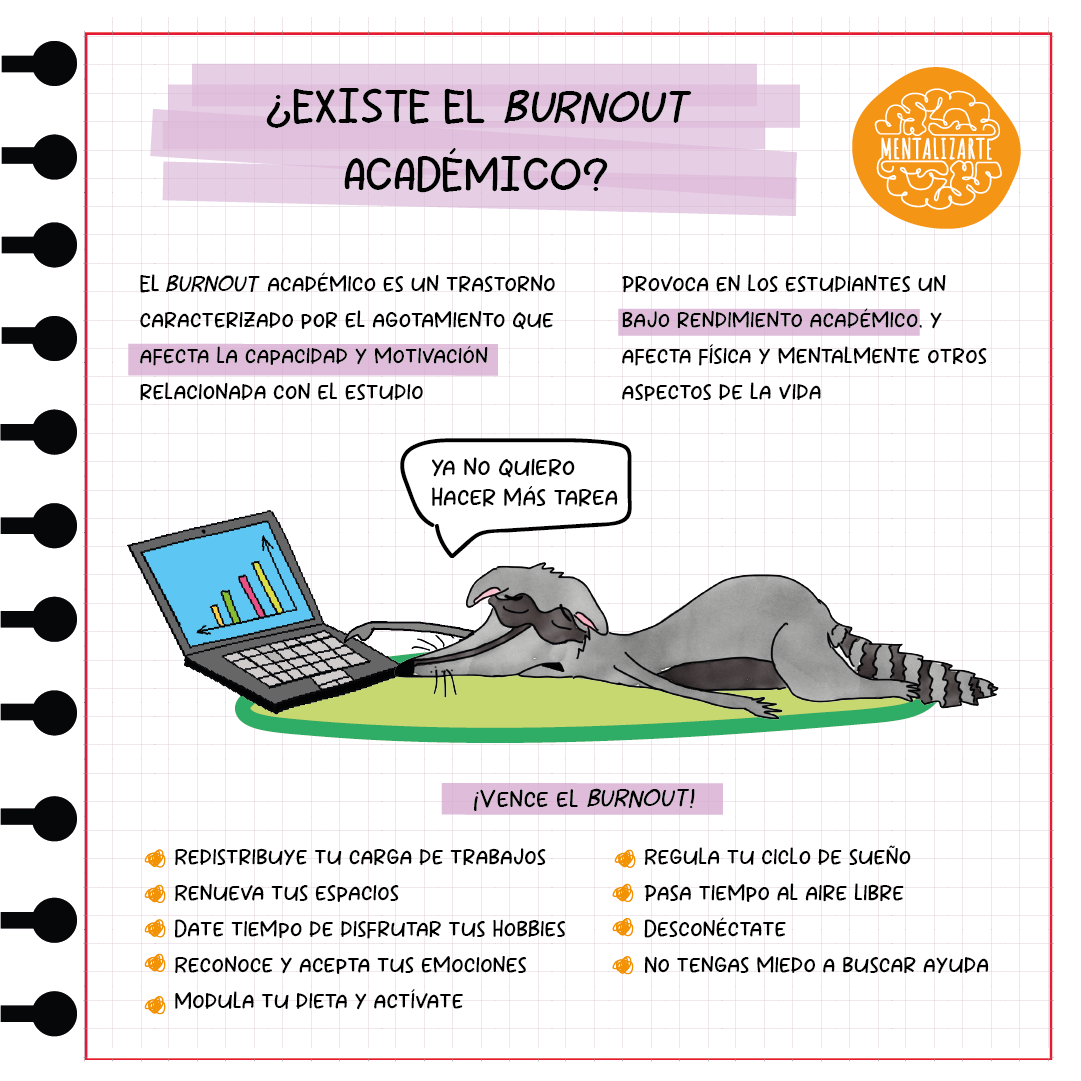 ¿EXISTE EL BURNOUT
ACADÉMICO?
MENTALIZARTE
EL BURNOUT ACADÉMICO ES UN TRASTORNO
CARACTERIZADO POR EL AGOTAMIENTO QUE
AFECTA LA CAPACIDAD Y MOTIVACIÓN
RELACIONADA CON EL ESTUDIO
PROVOCA EN LOS ESTUDIANTES UN
BAJO RENDIMIENTO ACADÉMICO. Y
AFECTA FÍSICA Y MENTALMENTE OTROS
ASPECTOS DE LA VIDA
YA NO QUIERO
HACER MÁS TAREA
¡VENCE EL BURNOUT!
REDISTRIBUYE TU CARGA DE TRABAJOS
RENUEVA TUS ESPACIOS
DATE TIEMPO DE DISFRUTAR TUS HOBBIES
RECONOCE Y ACEPTA TUS EMOCIONES
MODULA TU DIETA Y ACTÍVATE
REGULA TU CICLO DE SUEÑO
PASA TIEMPO AL AIRE LIBRE
DESCONÉCTATE
NO TENGAS MIEDO A BUSCAR AYUDA